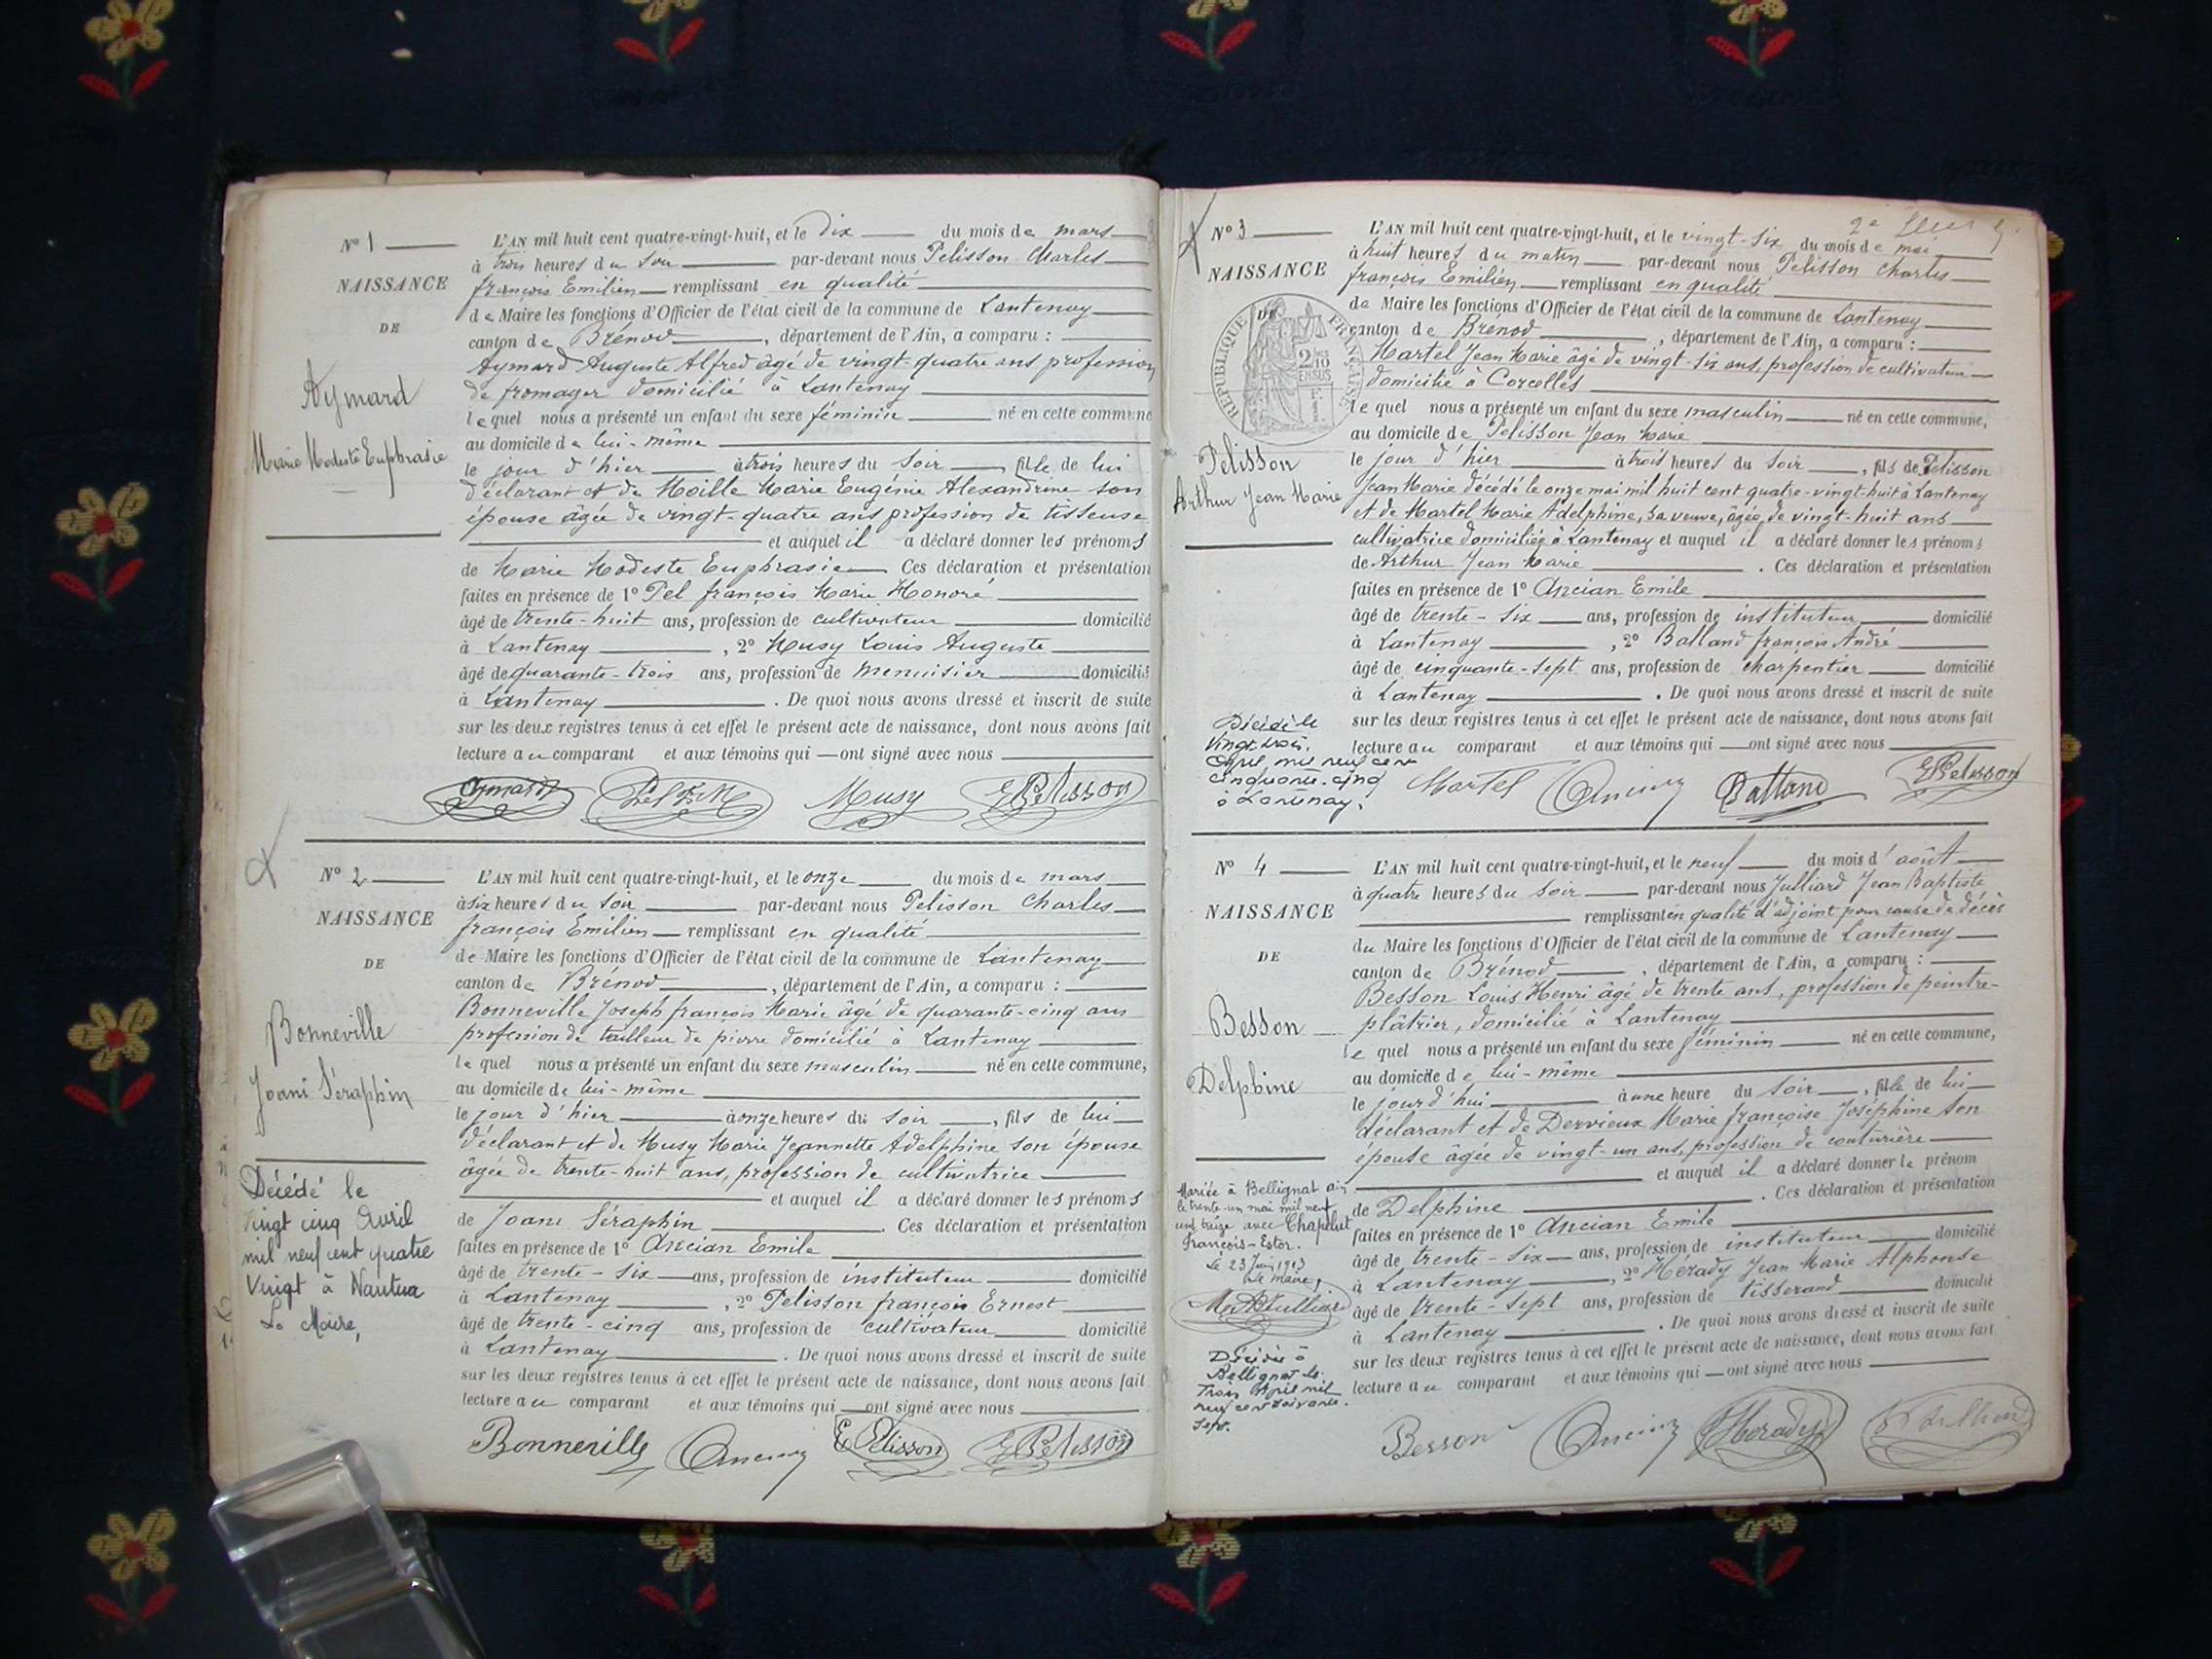 N° 1
NAISSANCE
DE
Aymard
Marie Modeste Euphrasie
L'AN mil huit cent quatre-vingt-huit, et le dix du mois de mars
à trois heures du soir par-devant nous Pelisson Charles
françois Emilien remplissant en qualité
de Maire les fonctions d'Officier de l'état civil de la commune de Lantenay
canton de Brénod, département de l'Ain, a comparu :
Aymard Auguste Alfred âgé de vingt-quatre ans profession
de fromager domicilié à Lantenay
lequel nous a présenté un enfant du sexe féminin né en cette commune
au domicile de lui-même
le jour d'hier à trois heures du soir, fille de lui
déclarant et de Moille Marie Eugénie Alexandrine son
épouse âgée de vingt-quatre ans profession de tisseuse
et auquel il a déclaré donner les prénoms
de Marie Modeste Euphrasie Ces déclaration et présentation
faites en présence de 1° Pel françois Marie Honoré
âgé de trente-huit ans, profession de cultivateur domicilié
à Lantenay, 2° Musy Louis Auguste
âgé de quarante-trois ans, profession de menuisier domicilié
à Lantenay. De quoi nous avons dressé et inscrit de suite
sur les deux registres tenus à cet effet le présent acte de naissance, dont nous avons fait
lecture au comparant et aux témoins qui ont signé avec nous
Aymard Pel F M Musy E Pelisson
N° 2
NAISSANCE
DE
Bonneville
Joani Séraphin
Décédé le
vingt cinq Avril
mil neuf cent quatre
Vingt à Nantua
Le Maire,
L'AN mil huit cent quatre-vingt-huit, et le onze du mois de mars
à six heures du soir par-devant nous Pelisson Charles
françois Emilien remplissant en qualité
de Maire les fonctions d'Officier de l'état civil de la commune de Lantenay
canton de Brénod, département de l'Ain, a comparu :
Bonneville Joseph françois Marie âgé de quarante-cinq ans
profession de tailleur de pierre domicilié à Lantenay
lequel nous a présenté un enfant du sexe masculin né en cette commune,
au domicile de lui-même
le jour d'hier à onze heures du soir, fils de lui
déclarant et de Musy Marie Jeannette Adelphine son épouse
âgée de trente-huit ans, profession de cultivatrice
et auquel il a déclaré donner les prénoms
de Joani Séraphin. Ces déclaration et présentation
faites en présence de 1° Ancian Emile
âgé de trente-six ans, profession de instituteur domicilié
à Lantenay, 2° Pelisson françois Ernest
âgé de trente-cinq ans, profession de cultivateur domicilié
à Lantenay. De quoi nous avons dressé et inscrit de suite
sur les deux registres tenus à cet effet le présent acte de naissance, dont nous avons fait
lecture au comparant et aux témoins qui ont signé avec nous
Bonneville Ancian E Pelisson E Pelisson
2e
N° 3
NAISSANCE
DE
RÉPUBLIQUE FRANÇAISE
2/10 EN SUS
Pelisson
Arthur Jean Marie
Décédé le
Vingt trois
Avril mil neuf cent
cinquante-cinq
à Lantenay.
L'AN mil huit cent quatre-vingt-huit, et le vingt-six du mois de mai
à huit heures du matin par-devant nous Pelisson Charles
françois Emilien remplissant en qualité
de Maire les fonctions d'Officier de l'état civil de la commune de Lantenay
canton de Brénod, département de l'Ain, a comparu :
Martel Jean Marie âgé de vingt-six ans, profession de cultivateur
domicilié à Corcelles
lequel nous a présenté un enfant du sexe masculin né en cette commune,
au domicile de Pelisson Jean Marie
le jour d'hier à trois heures du soir, fils de Pelisson
Jean Marie décédé le onze mai mil huit cent quatre-vingt-huit à Lantenay
et de Martel Marie Adelphine, sa veuve, âgée de vingt-huit ans
cultivatrice domiciliée à Lantenay et auquel il a déclaré donner les prénoms
de Arthur Jean Marie. Ces déclaration et présentation
faites en présence de 1° Ancian Emile
âgé de trente-six ans, profession de instituteur domicilié
à Lantenay, 2° Balland françois André
âgé de cinquante-sept ans, profession de charpentier domicilié
à Lantenay. De quoi nous avons dressé et inscrit de suite
sur les deux registres tenus à cet effet le présent acte de naissance, dont nous avons fait
lecture au comparant et aux témoins qui ont signé avec nous
Martel Ancian Balland E Pelisson
N° 4
NAISSANCE
DE
Besson
Delphine
Mariée à Bellignat Ain
le trente-un mai mil neuf
cent treize avec Chapelut
François-Ester.
Le 23 Juin 1913
Le Maire,
Décédée à
Bellignat le
Trois Avril mil
neuf cent soixante
sept.
L'AN mil huit cent quatre-vingt-huit, et le neuf du mois d'août
à quatre heures du soir par-devant nous Julliard Jean Baptiste
remplissant en qualité d'adjoint pour cause de décès
du Maire les fonctions d'Officier de l'état civil de la commune de Lantenay
canton de Brénod, département de l'Ain, a comparu :
Besson Louis Henri âgé de trente ans, profession de peintre-
plâtrier, domicilié à Lantenay
lequel nous a présenté un enfant du sexe féminin né en cette commune,
au domicile de lui-même
le jour d'hui à une heure du soir, fille de lui
déclarant et de Dervieux Marie françoise Joséphine son
épouse âgée de vingt-un ans, profession de couturière
et auquel il a déclaré donner le prénom
de Delphine. Ces déclaration et présentation
faites en présence de 1° Ancian Emile
âgé de trente-six ans, profession de instituteur domicilié
à Lantenay, 2° Hérady Jean Marie Alphonse
âgé de trente-sept ans, profession de tisserand domicilié
à Lantenay. De quoi nous avons dressé et inscrit de suite
sur les deux registres tenus à cet effet le présent acte de naissance, dont nous avons fait
lecture au comparant et aux témoins qui ont signé avec nous
Besson Ancian Herady Julliard